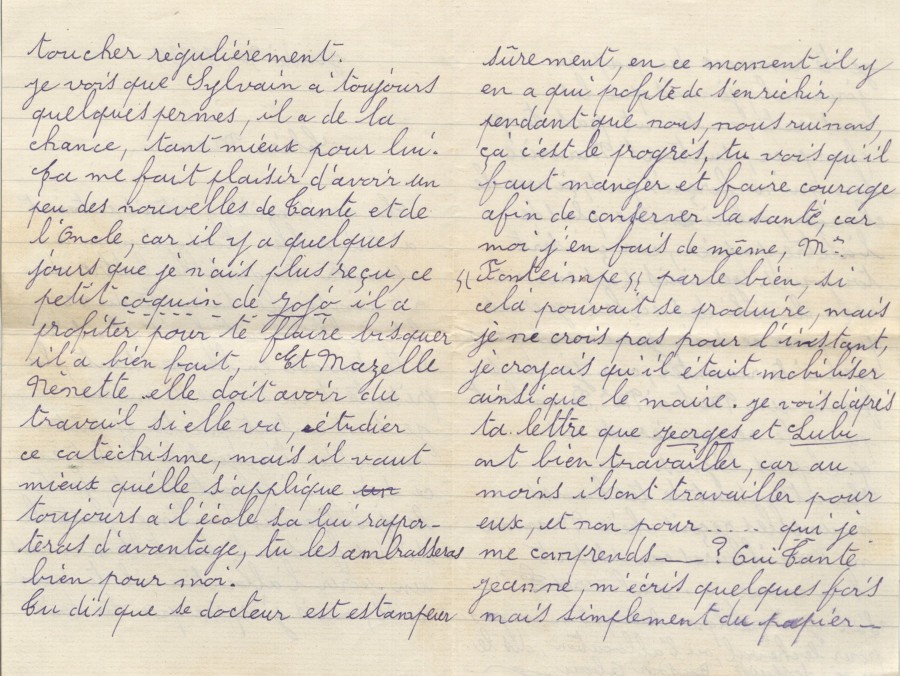 toucher régulièrement.
je vois que Sylvain à toujours
quelques permes, il a de la
chance, tant mieux pour lui.
Ça me fait plaisir d'avoir un
peu des nouvelles de Tante et de
l'Oncle, car il y a quelques
jours que je n'ais plus reçu, ce
petit coquin de jojo il a
profiter pour te faire bisquer
il a bien fait, Et Mazelle
Nénette elle doit avoir du
travail si elle va, étudier
ce catéchisme, mais il vaut
mieux quélle s'applique un
toujours a l'école sa lui rappor-
teras d'avantage, tu les ambrasseras
bien pour moi.
Tu dis que se docteur est estampeur
sûrement, en ce moment il y
en a qui profite de s'enrichir,
pendant que nous, nous ruinons,
çà c'est le progrés, tu vois qu'il
faut manger et faire courage
afin de conserver la santé, car
moi j'en fais de même, Mr
"Fonteimpe" parle bien, si
celà pouvait se produire, mais
je ne crois pas pour l'instant,
je croyais qu'il était mobiliser
ainsi que le maire. je vois d'aprés
ta lettre que jeorges et Lulu
ont bien travailler, car au
moins ils ont travailler pour
eux, et non pour ...... qui je
me comprends — ? Oui Tante
jeanne, m'écris quelques fois
mais simplement du papier —